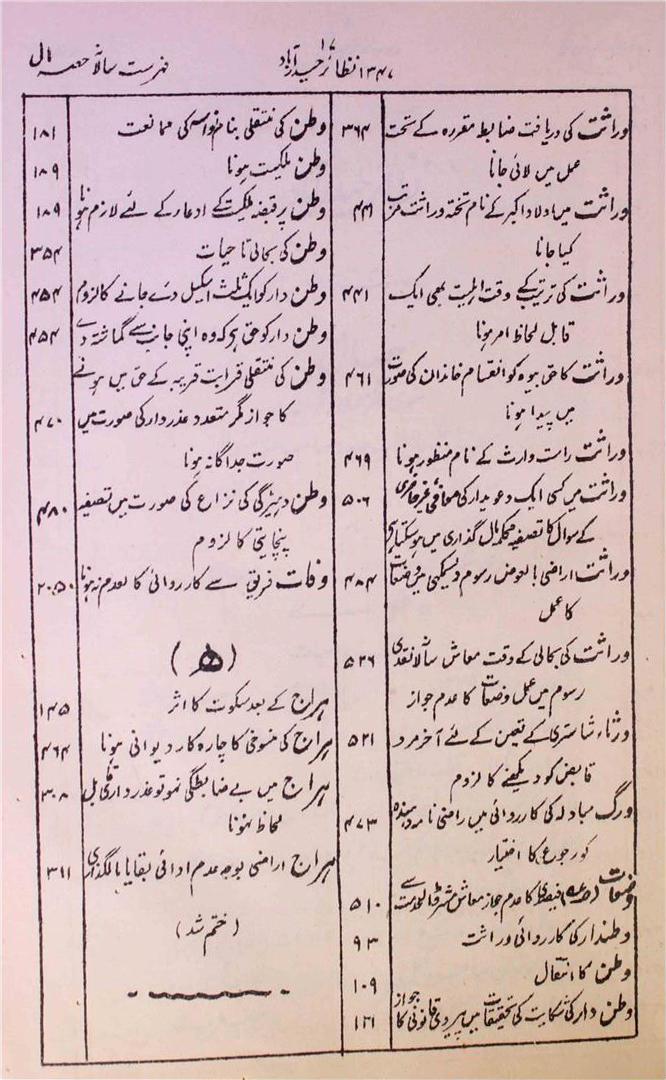 فہرست سالانہ حصہ مال
۱۷
۱۳۴۷ نظائر حیدرآباد
وراثت کی دریافت ضابطہ مقررہ کے تحت ۳۶۴
عمل میں لائی جانا
وراثت میں اولاد اکبر کے نام تختہ وراثت مرتب ۴۴۱
کیا جانا
وراثت کی ترتیب کے وقت اہلیت بھی ایک ۴۴۱
قابل لحاظ امر ہونا
وراثت کا حق بیوہ کو انقسام خاندان کی صورت ۴۶۱
میں پیدا ہونا
وراثت راست وارث کے نام منظور ہونا ۴۶۹
وراثت میں کسی ایک دعویدار کی معافی غیر حاضری ۵۰۶
کے سوال کا تصفیہ محکمہ مال گذاری میں ہو سکتا ہے
وراثت اراضی بالعوض رسوم دیسمکھی میں وضعات ۴۸۴
کا عمل
وراثت کی بحالی کے وقت معاش سالانہ نقدی ۵۲۶
رسوم میں عمل وضعات کا عدم جواز
ورثاء شاستری کے تعین کے لئے آخر مرد ۵۲۱
قابض کو دیکھنے کا لزوم
ورگ مبادلہ کی کارروائی میں راضی نامہ دہندہ ۴۷۳
کو رجوع کا اختیار
وضعات فیصدی کا عدم جواز معاش مشروط الخدمت سے ۵۱۰
وطندار کی کارروائی وراثت ۹۳
وطن کا انتقال ۱۰۹
وطن دار کی شکایت کی تحقیقات میں پیروی قانونی کا جواز ۱۲۱
وطن کی منتقلی بنام نواسہ کی ممانعت ۱۸۱
وطن ملکیت ہونا ۱۸۹
وطن پر قبضہ ملکیت کے ادعار کے لئے لازم ہونا ۱۸۹
وطن کی بحالی تا حیات ۳۵۴
وطن دار کو ایک ثلث اسکیل دئے جانے کا لزوم ۴۵۴
وطن دار کو حق ہے کہ وہ اپنی جانب سے گماشتہ دے ۴۵۴
وطن کی منتقلی قرابت قریبہ کے حق میں ہونے
کا جواز مگر متعدد عذردار کی صورت میں ۴۷۰
صورت جداگانہ ہونا
وطن دہیڑگی کی نزاع کی صورت میں تصفیہ ۴۸۰
پنچایتی کا لزوم
وفات فریق سے کارروائی کا لعدم نہ ہونا ۲۰،۵۰
(ھ)
ہراج کے بعد سکوت کا اثر ۱۴۵
ہراج کی منسوخی کا چارہ کار دیوانی ہونا ۴۶۴
ہراج میں بے ضابطگی نہو تو عذرداری قابل ۳۰۸
لحاظ نہونا
ہراج اراضی بوجہ عدم ادائی بقایا مالگذاری ۳۱۱
(ختم شد)